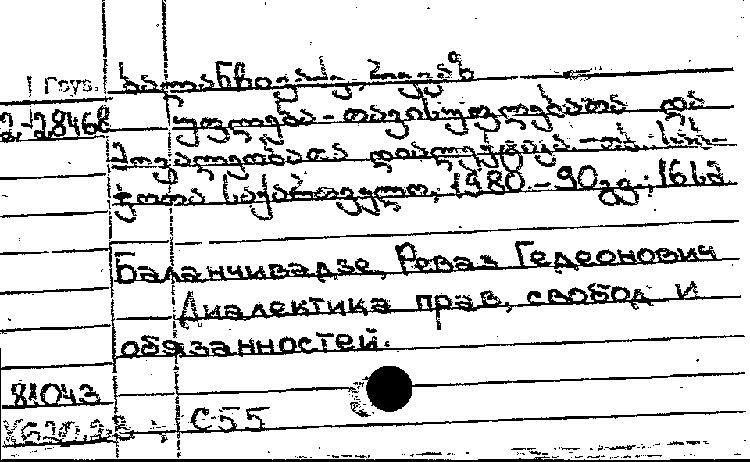 Груз. ბალანჩივაძე, რევაზ
2-28468 უფლება-თავისუფლებათა და
მოვალეობათა დიალექტიკა. -თბ.: საბ-
ჭოთა საქართველო, 1980. -90გვ.; 16სმ
Баланчивадзе, Реваз Гедеонович
Диалектика прав, свобод и
обязанностей.
81043
Х620.2.3 С55